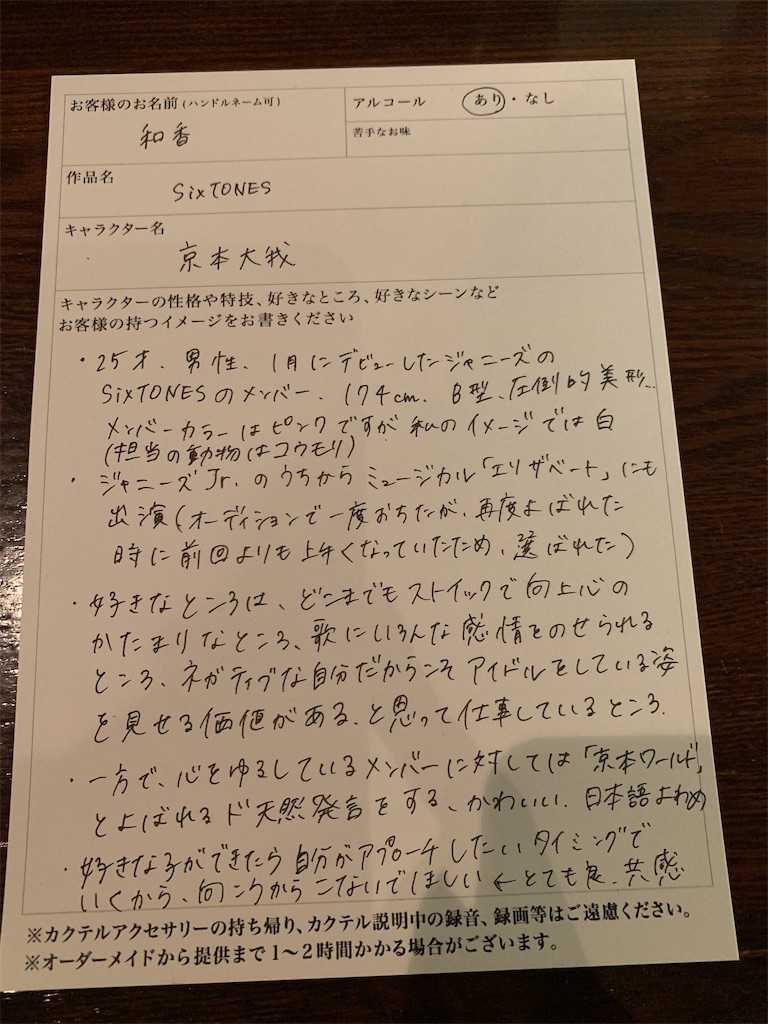 お客様のお名前(ハンドルネーム可)
和香
アルコール あり・なし
苦手なお味
作品名
SixTONES
キャラクター名
京本大我
キャラクターの性格や特技、好きなところ、好きなシーンなど
お客様の持つイメージをお書きください
・25才、男性、1月にデビューしたジャニーズの
SixTONESのメンバー、174cm、B型、圧倒的美形、
メンバーカラーはピンクですが私のイメージでは白
(担当の動物はコウモリ)
・ジャニーズJr.のうちからミュージカル「エリザベート」にも
出演(オーディションで一度おちたが、再度よばれた
時に前回よりも上手くなっていたため、選ばれた)
・好きなところは、どこまでもストイックで向上心の
かたまりなところ、歌にいろんな感情をのせられる
ところ、ネガティブな自分だからこそアイドルをしている姿
を見せる価値がある、と思って仕事しているところ、
・一方で、心をゆるしているメンバーに対しては「京本ワールド」
とよばれるド天然発言をする、かわいい、日本語よわめ
・好きな子ができたら自分がアプローチしたいタイミングで
いくから、向こうからこないでほしい←とても良、共感
※カクテルアクセサリーの持ち帰り、カクテル説明中の録音、録画等はご遠慮ください。
※オーダーメイドから提供まで1〜2時間かかる場合がございます。